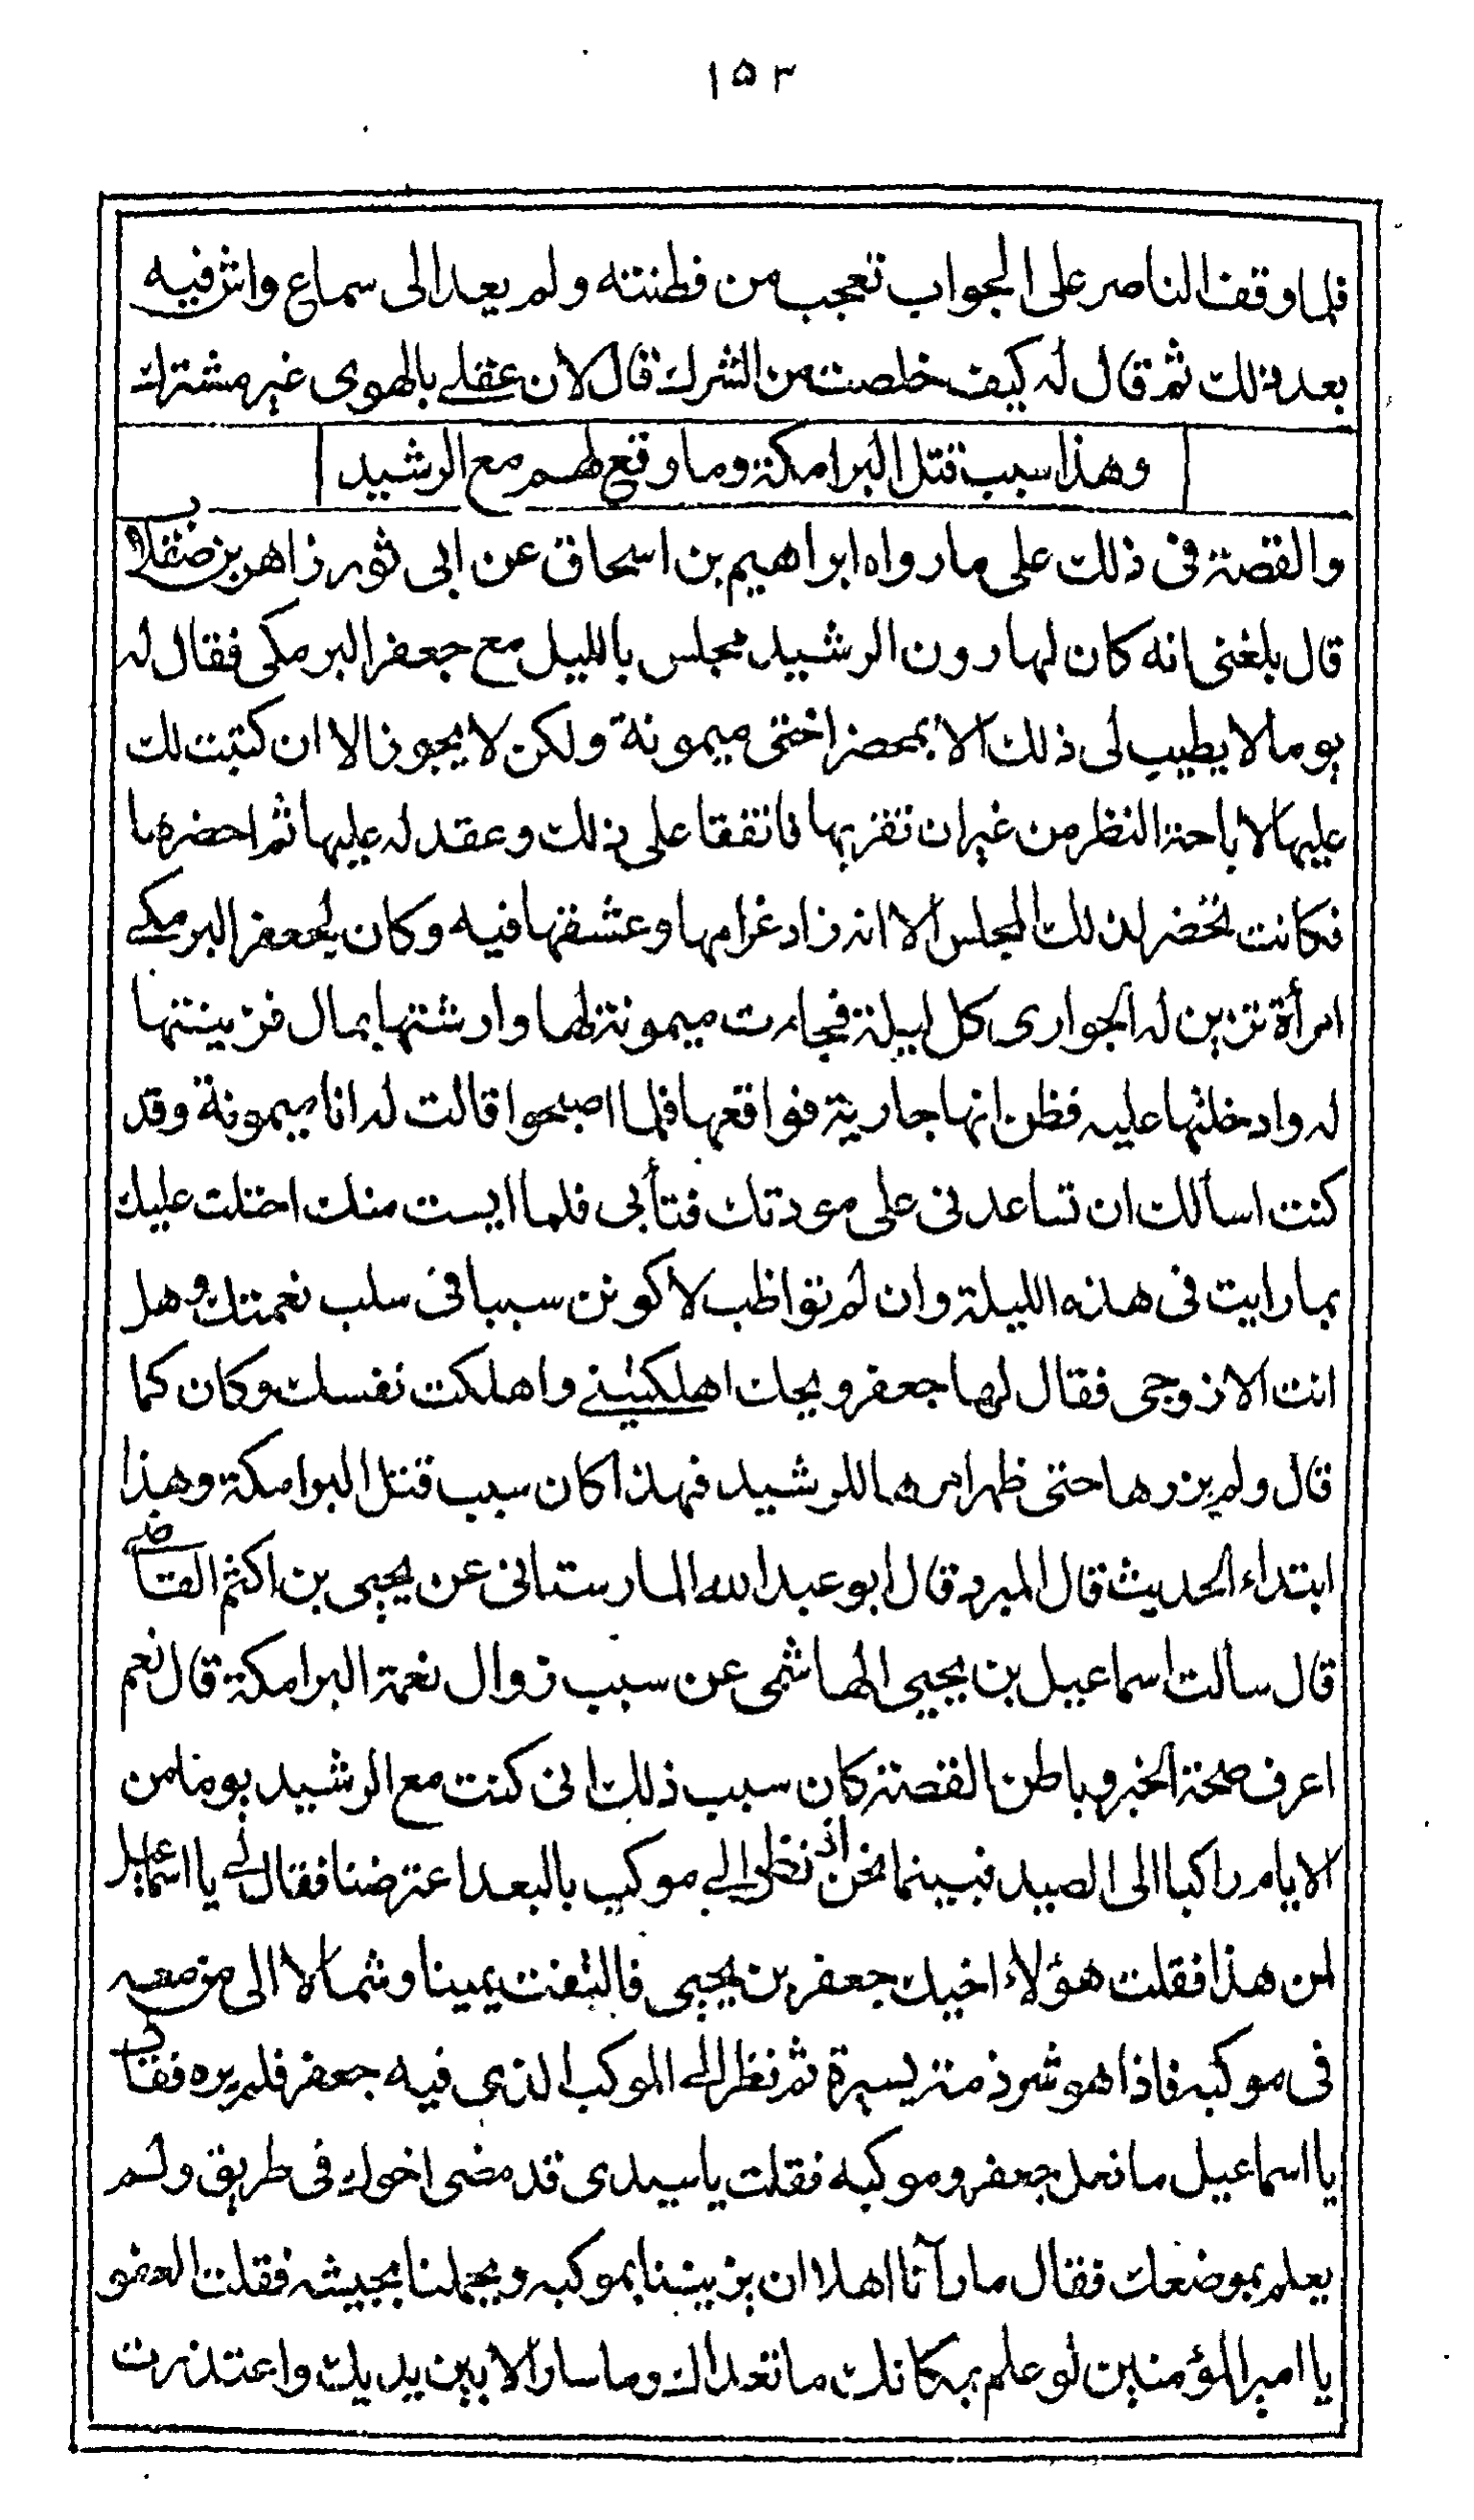 ١٥٣
فلما وقف الناصر على الجواب تعجب من فطنته ولم يعد الى سماع واش فيه
بعد ذلك ثم قال له كيف خلصت من الشرك قال لان عقلي بالهوى غير مشترك
وهذا سبب قتل البرامكة وما وقع لهم مع الرشيد
والقصة فى ذلك على ما رواه ابراهيم بن اسحاق عن ابى ثور زاهر بن صقلاب
قال بلغنى انه كان لهارون الرشيد مجلس بالليل مع جعفر البرمكى فقال له
يوما لا يطيب لى ذلك الا بمحضر اختى ميمونة ولكن لا يجوز الا ان كتبت لك
عليها لاباحة النظر من غير ان تقربها فاتفقا على ذلك وعقد له عليها ثم احضرها
فكانت تحضر لذلك المجلس الا انه زاد غرامها وعشقها فيه وكان لجعفر البرمكي
امرأة تزين له الجوارى كل ليلة فجاءت ميمونة لها وارشتها بمال فزينتها
له وادخلتها عليه فظن انها جارية فواقعها فلما اصبحوا قالت له انا ميمونة وقد
كنت اسألك ان تساعدنى على مودتك فتأبى فلما ايست منك احتلت عليك
بما رايت فى هذه الليلة وان لم تواظب لاكونن سببا فى سلب نعمتك وهل
انت الا زوجى فقال لها جعفر ويحك اهلكتيني واهلكت نفسك وكان كما
قال ولم يزرها حتى ظهر امرها للرشيد فهذا كان سبب قتل البرامكة وهذا
ابتداء الحديث قال المبرد قال ابو عبد الله المارستانى عن يحيى بن اكثم القاضي
قال سالت اسماعيل بن يحيى الهاشمى عن سبب زوال نعمة البرامكة قال نعم
اعرف صحة الخبر وباطن القصة كان سبب ذلك انى كنت مع الرشيد يوما من
الايام راكبا الى الصيد فبينما نحن اذ نظر الي موكب بالبعد اعترضنا فقال لي يا اسماعيل
لمن هذا فقلت هؤلاء اخيك جعفر بن يحيى فالتفت يمينا وشمالا الى من معه
فى موكبه فاذا هو شرذمة يسيرة ثم نظر الى الموكب الذى فيه جعفر فلم يره فقال
يا اسماعيل ما فعل جعفر وموكبه فقلت يا سيدى قد مضى اخوك فى طريق ولم
يعلم بموضعك فقال ما رآنا اهلا ان يزيننا بموكبه ويجملنا بجيشه فقلت العفو
يا امير المؤمنين لو علم بمكانك ما تعداك وما سار الا بين يديك واعتذرت